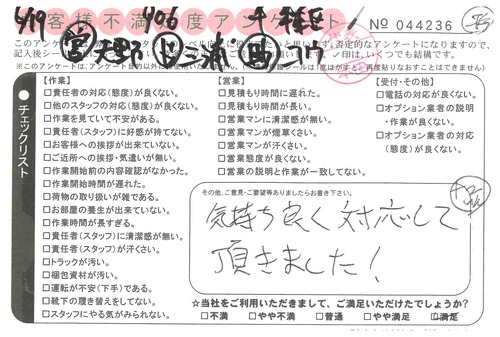 お客様不満足度アンケート
No 044236
4/19 406 千種区
【作業】
□責任者の対応(態度)が良くない。
□他のスタッフの対応(態度)が良くない。
□作業を見ていて不安がある。
□責任者(スタッフ)に好感が持てない。
□お客様への挨拶が出来ていない。
□ご近所への挨拶・気遣いが無い。
□作業開始前の内容確認がなかった。
□作業開始時間が遅れた。
□荷物の取り扱いが雑である。
□お部屋の養生が出来ていない。
□作業時間が長すぎる。
□責任者(スタッフ)に清潔感が無い。
□責任者(スタッフ)が汗くさい。
□トラックが汚い。
□梱包資材が汚い。
□運転が不安(下手)である。
□靴下の履き替えをしてない。
□スタッフにやる気がみられない。
【営業】
□見積もり時間に遅れた。
□見積もり時間が長い。
□営業マンに清潔感が無い。
□営業マンが煙草くさい。
□営業マンが汗くさい。
□営業態度が良くない。
□営業の説明と作業が一致してない。
【受付・その他】
□電話の対応が良くない。
□オプション業者の説明
・作業が良くない。
□オプション業者の対応
(態度)が良くない。
チェックリスト
その他、ご意見・ご要望等ありましたらお書き下さい。
気持ち良く対応して
頂きました!
☆当社をご利用いただきまして、ご満足いただけたでしょうか?
□不満 □やや不満 □普通 □やや満足 □満足